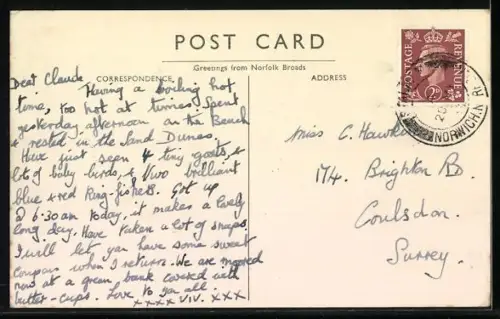 POST CARD
Greetings from Norfolk Broads
CORRESPONDENCE
ADDRESS
POSTAGE
REVENUE
2D
NORWICH.
Dear Claude
Having a boiling hot
time, too hot at times. Spent
yesterday afternoon on the Beach
& rested in the Sand Dunes.
Have just seen 4 tiny goats, &
lots of baby-birds, & two brilliant
blue & red King-fishers. Got up
@ 6.30am today, it makes a lovely
long day. Have taken a lot of snaps.
I will let you have some sweet
coupons when I return. We are moored
now at a green bank covered with
butter-cups. Love to you all.
xxxx VIV. xxx
Miss C.
174. Brighton Rd.
Coulsdon.
Surrey.